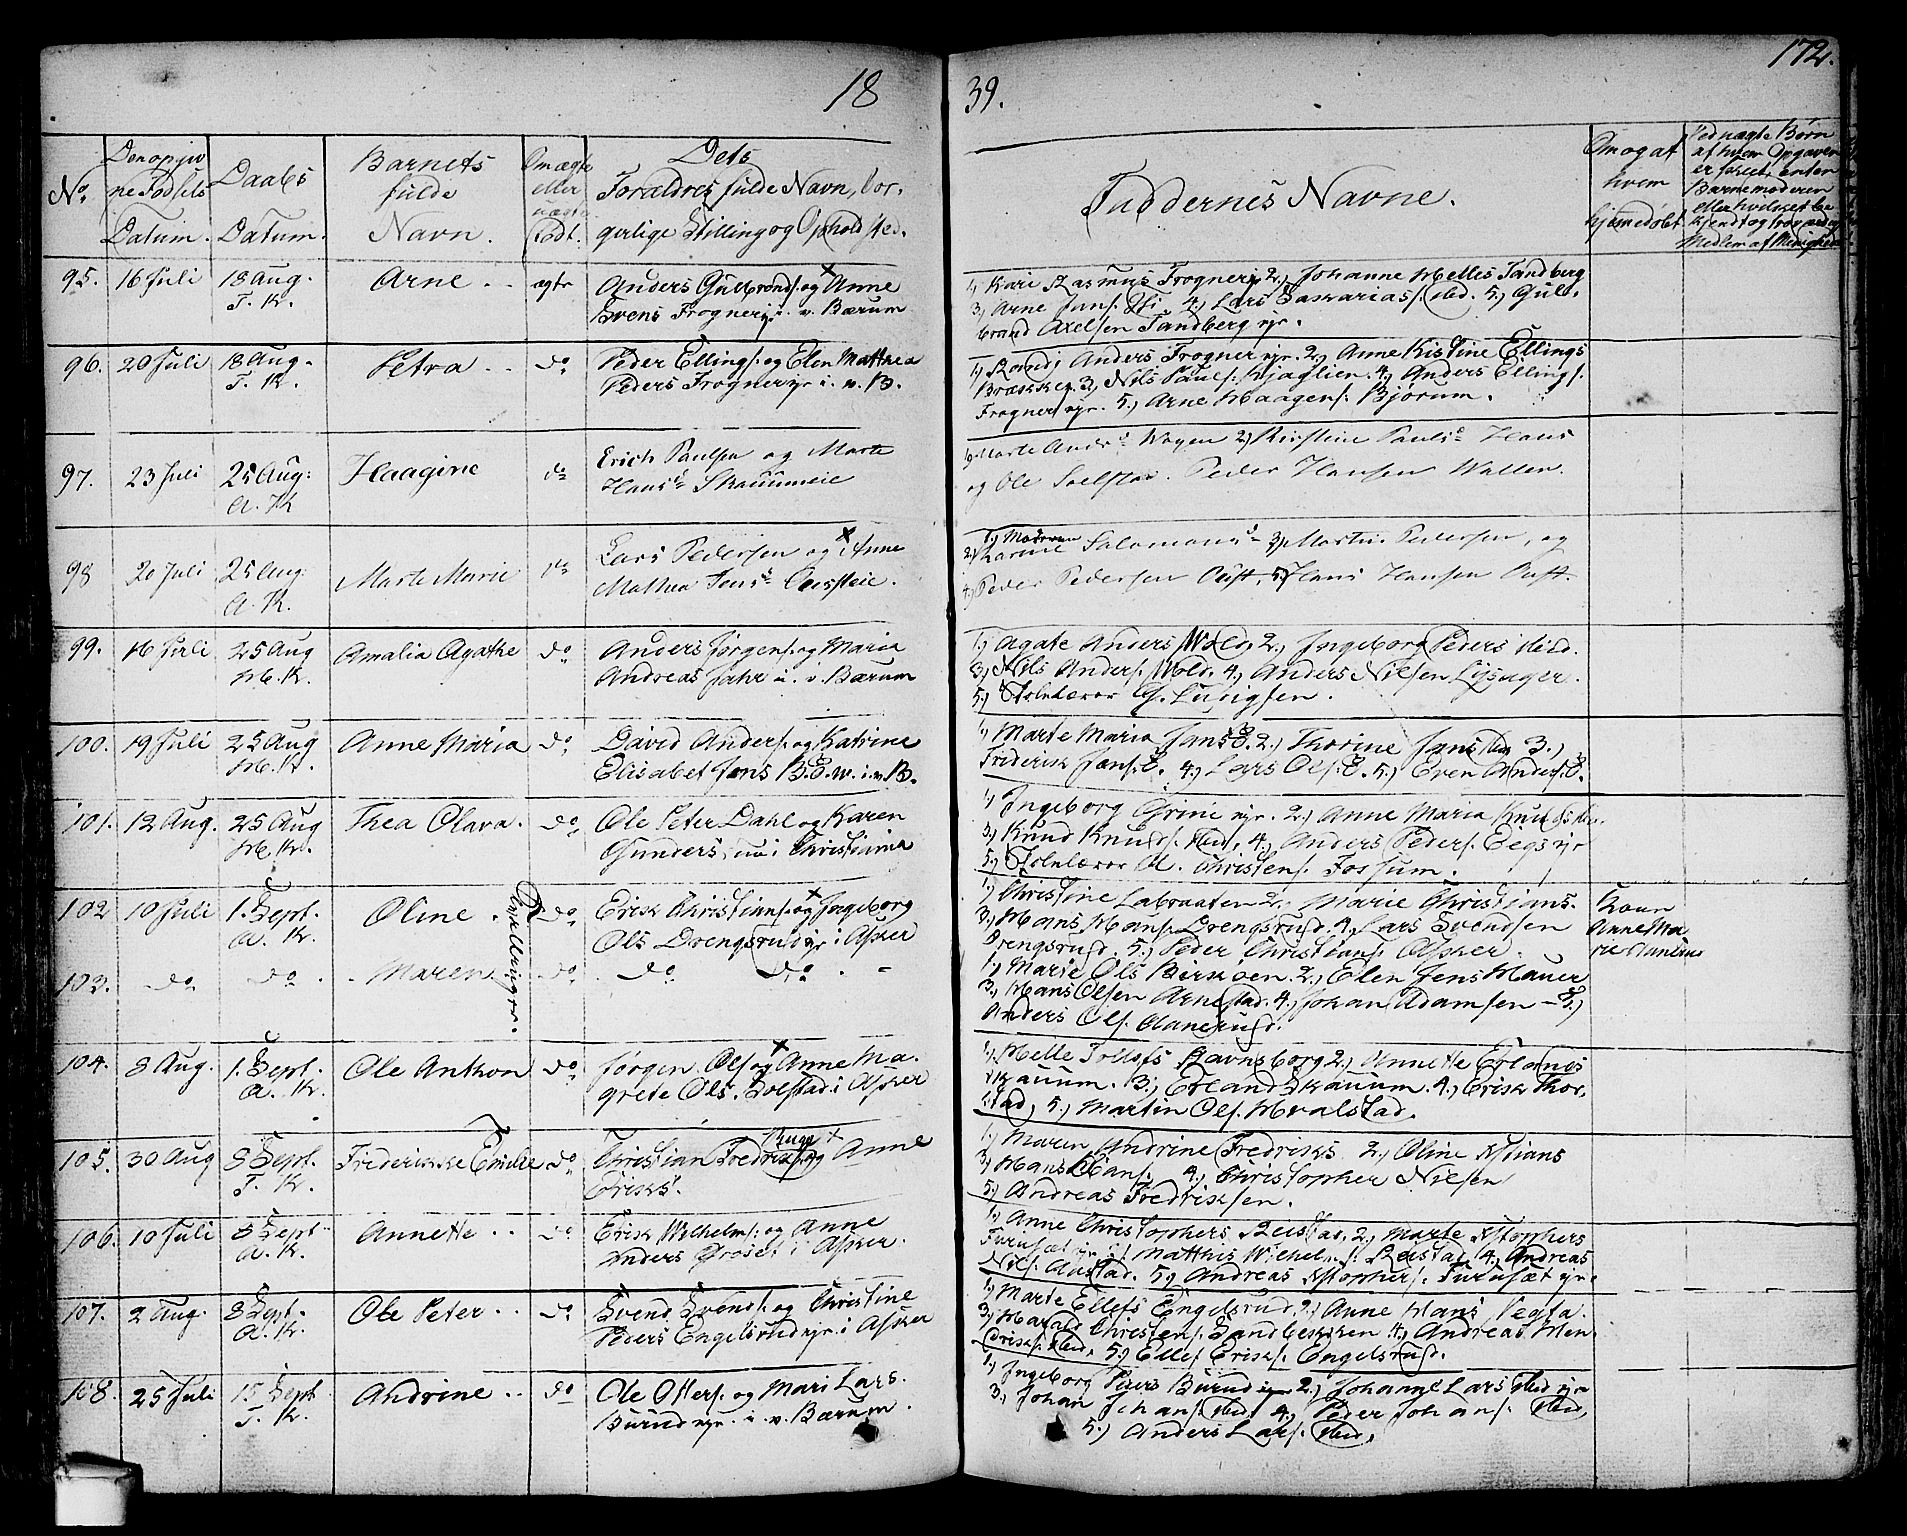 18
39.
172.
No.
Den opgiv
ne Fødsels
Datum.
Daabs
Datum.
Barnets
fulde
Navn.
Om ægte
eller
uægte
födt.
Dets
Foræeldres fulde Navn, bor,
gerlige Stilling og Opholdsted.
Faddernes Navne.
Om og af
hvem
hjemedøbt
Ved uægte Børn
af hvem Opgaven
er skeet, enten
Barnemoderen
eller hvilket be
kjendt og troværdig
Medlem af Menighed
95. 16 Juli 18 Aug. Arne . . ægte Anders Gulbrands. og Anne
T. K. Svens Frogner i. v. Bærum
1, Kari Rasmus Frogner 2, Johanne Helles Tandberg
3, Arne Jans. 4, Lars Saskarias. sted. 5, Gul,
brand Axelsen Tandberg eje.
96. 20 Juli 18 Aug. Petra . . do Peder Ellings. og Elen Matthea
T. K. Peders Frogner eje i. v. B.
1, Rondi Anders Frogner eje. 2, Anne Kistine Ellings
Brækken 3, Nils Pauls. Kjaglien. 4, Anders Ellings.
Frogner eje. 5, Arne Haagens. Bjørum.
97. 23 Juli 25 Aug: Haagine do Erich Paulsen og Marte
A. K. Hansd. Skauumeie
1, Marte Andrd. Wøyen 2, Kirstine Paulsd. Hans
og Ole Soelstad. Peder Hansen Wallen.
98 20 Juli 25 Aug: Marte Marie do Lars Pedersen og Anne
A. K. Mathea Jensd.
1, Moderen
2, Karine Salomonsd. 3, Martin Pedersen, og
4, Peder Pedersen 5, Hans Hansen
99. 16 Juli 25 Aug Amalia Agathe do Anders Jørgens. og Maria
H. K. Andreas Jahr i. v. Bærum
1, Agate Anders Wold, 2, Ingeborg Peders
3, Nils Anders. Wold. 4, Anders Nilsen Lysager.
5, Skolelærer G.
100. 19 Juli 25 Aug Anne Maria do David Anders. og Katrine
H. K. Elisabet Jens B.Ø.W. i. v. B.
1, Marte Maria Jans Ø. 2, Thorine Jans sted 3,
Friderik Jans. Ø. 4, Lars Ols. Ø. 5, Even Anders. Ø.
101. 12 Aug. 25 Aug Thea Olava. do Ole Peter Dahl og Karen
H. K. Gunders, nu i Christiania
1, Ingeborg Grini eje. 2, Anne Maria Knuds
3, Knud Knuds. sted, 4, Anders Peders. Eegs eje
5, Skolelærer A. Christens. Fossum.
102 10 Juli 1. Sept. Oline . Tvillinger. do Erik Christians. og Ingeborg
A. K. Ols Drengsrud eje i Asker
1, Christine Labraaten 2, Marie Christians.
3, Hans Hans. Drengsrud. 4, Lars Svendsen
Drengsrud. 5, Peder Christians. Asker.
Anne Ma
rie
103. do do . Maren do do do . -
1, Marie Ols Berskoen. 2, Elen Jens Hauer
3, Hans Olsen Arnestad. 4, Johan Adamsen - 5,
Anders Ols.
104. 8 Aug. 1. Sept. Ole Anthon do Jørgen Ols. og Anne Ma.
A. K. grete Ols. Solstad i Asker
1, Helle Tollefs Ravnsborg 2, Annette Erlands
Skauum. 3, Erland Skauum. 4, Erik Thor,
stad, 5, Martin Ols. Hvalstad.
105. 30 Aug 8 Sept. Frederikke Emilie do Christian Fredriks. og Anne
T. K. Eriks.
1, Maren Andrine Fredriks 2, Oline Kstians
3, Hans Hans. 4, Christopher Nilsen
5, Andreas Fredriksen.
106. 10 Juli 8 Sept. Annette . . do Erik Wilhelms. og Anne
A. K. Anders Groset i Asker.
1, Anne Christophers Reistad, 2, Marte Kstophers
Furusæt eje 3, Matthis Wilhelms. Reistad 4, Andreas
Nils. Austad. 5, Andreas Kstophers. Furusæt eje.
107. 2 Aug. 8 Sept. Ole Peter . . do Svend Svends. og Christine
A. K. Peders Engelsrud eje. i Asker
1, Marte Ellefs Engelsrud 2, Anne Hans Vegta.
3, Harald Christens. Sandbekken 4, Andreas Hen
driks. sted, 5, Ellef Eriks. Engelsrud.
108. 25 Juli 15 Sept Andrine . . do Ole Olters. og Mari Lars.
T. K. Burud eje. i. v. Bærum.
1, Ingeborg Peers Burud eje 2, Johanne Lars sted eje
3, Johan Johans. sted. 4, Peder Johans. sted,
5, Anders Lars. sted,